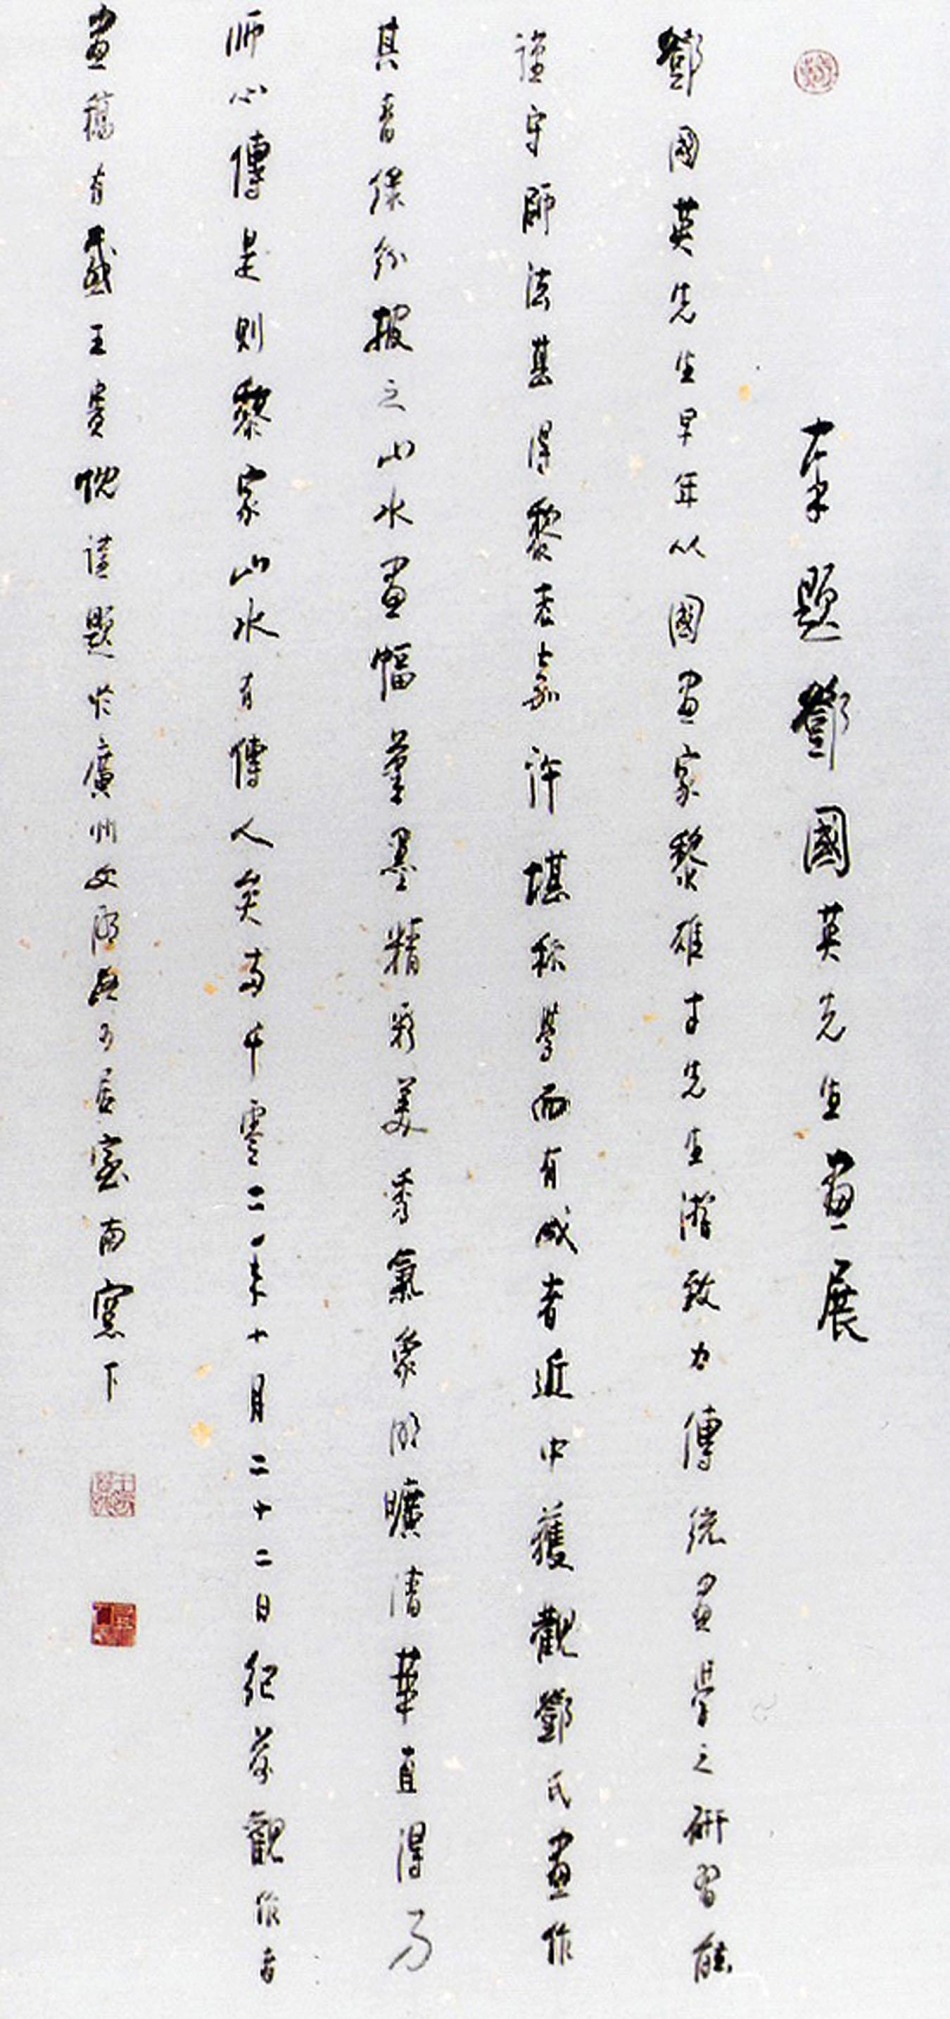 奉題鄧國英先生畫展
鄧國英先生早年從國畫家黎雄才先生游致力傳統畫學之研習能
謹守師法甚得黎老嘉許堪稱學而有成者近中獲觀鄧氏畫作
其音繽紛披之山水畫幅筆墨精彩美秀氣象明曠清華直得乃
師心傳是則黎家山水有傳人矣両千零二一年十月二十二日紀荷觀作者
畫稿有感王貴忱謹題於廣州文德路可居室南窗下